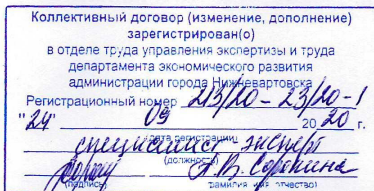 Коллективный договор (изменение, дополнение)
зарегистрирован(о)
в отделе труда управления экспертизы и труда
департамента экономического развития
администрации города Нижневартовска
Регистрационный номер 213/20-23/20-1
"24" 09 2020 г.
(дата регистрации)
специалист эксперт
(должность)
В. Сорокина
(подпись) (фамилия имя отчество)